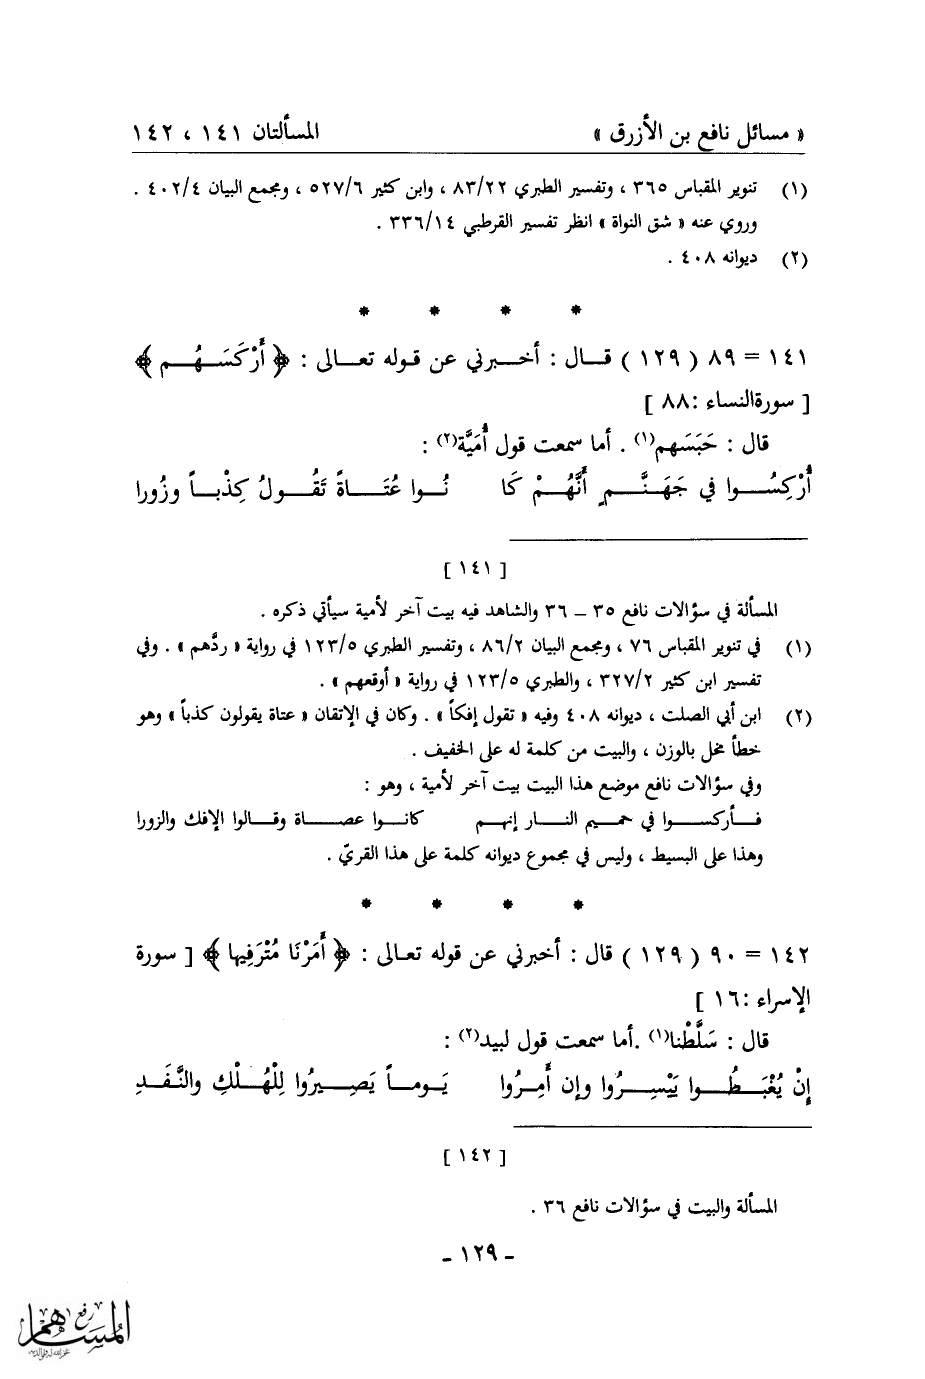 « مسائل نافع بن الأزرق » المسألتان ١٤١ ، ١٤٢
(١) تنوير المقباس ٣٦٥ ، وتفسير الطبري ٨٣/٢٢ ، وابن كثير ٥٢٧/٦ ، ومجمع البيان ٤٠٢/٤ .
وروي عنه « شق النواة » انظر تفسير القرطبي ٣٣٦/١٤ .
(٢) ديوانه ٤٠٨ .
* * * *
١٤١ = ٨٩ ( ١٢٩ ) قـال : أخـبرني عن قـوله تعـالى : ﴿ أَرْكَسَـهُـم ﴾
[ سورةالنساء :٨٨ ]
قال : حَبَسَهم(١) . أما سمعت قول أُمَيَّة(٢) :
أُرْكِسُـوا في جَهَنَّـمٍ أَنَّهُـمْ كَا نُـوا عُتَـاةً تَقُـولُ كِذْبـاً وزُورا
[ ١٤١ ]
المسألة في سؤالات نافع ٣٥ ــ ٣٦ والشاهد فيه بيت آخر لأمية سيأتي ذكره .
(١) في تنوير المقباس ٧٦ ، ومجمع البيان ٨٦/٢ ، وتفسير الطبري ١٢٣/٥ في رواية « ردَّهم » . وفي
تفسير ابن كثير ٣٢٧/٢ ، والطبري ١٢٣/٥ في رواية « أوقعهم » .
(٢) ابن أبي الصلت ، ديوانه ٤٠٨ وفيه « تقول إفكاً » . وكان في الإتقان « عتاة يقولون كذباً » وهو
خطأ مخل بالوزن ، والبيت من كلمة له على الخفيف .
وفي سؤالات نافع موضع هذا البيت بيت آخر لأمية ، وهو :
فـأركسـوا في حميـم النـار إنهـم كانـوا عصـاة وقـالوا الإفك والزورا
وهذا على البسيط ، وليس في مجموع ديوانه كلمة على هذا القريّ .
* * * *
١٤٢ = ٩٠ ( ١٢٩ ) قال : أخبرني عن قوله تعـالى : ﴿ أَمَرْنَا مُتْرَفِيها ﴾ [ سورة
الإسراء :١٦ ]
قال : سَلَّطْنا(١) .أما سمعت قول لبيد(٢) :
إِنْ يُغْبَـطُـوا يَيْسِـرُوا وإن أَمِرُوا يَومـاً يَصِـيرُوا لِلْهُـلْكِ والنَّفَـدِ
[ ١٤٢ ]
المسألة والبيت في سؤالات نافع ٣٦ .
- ١٢٩ -
رفع
المساهم